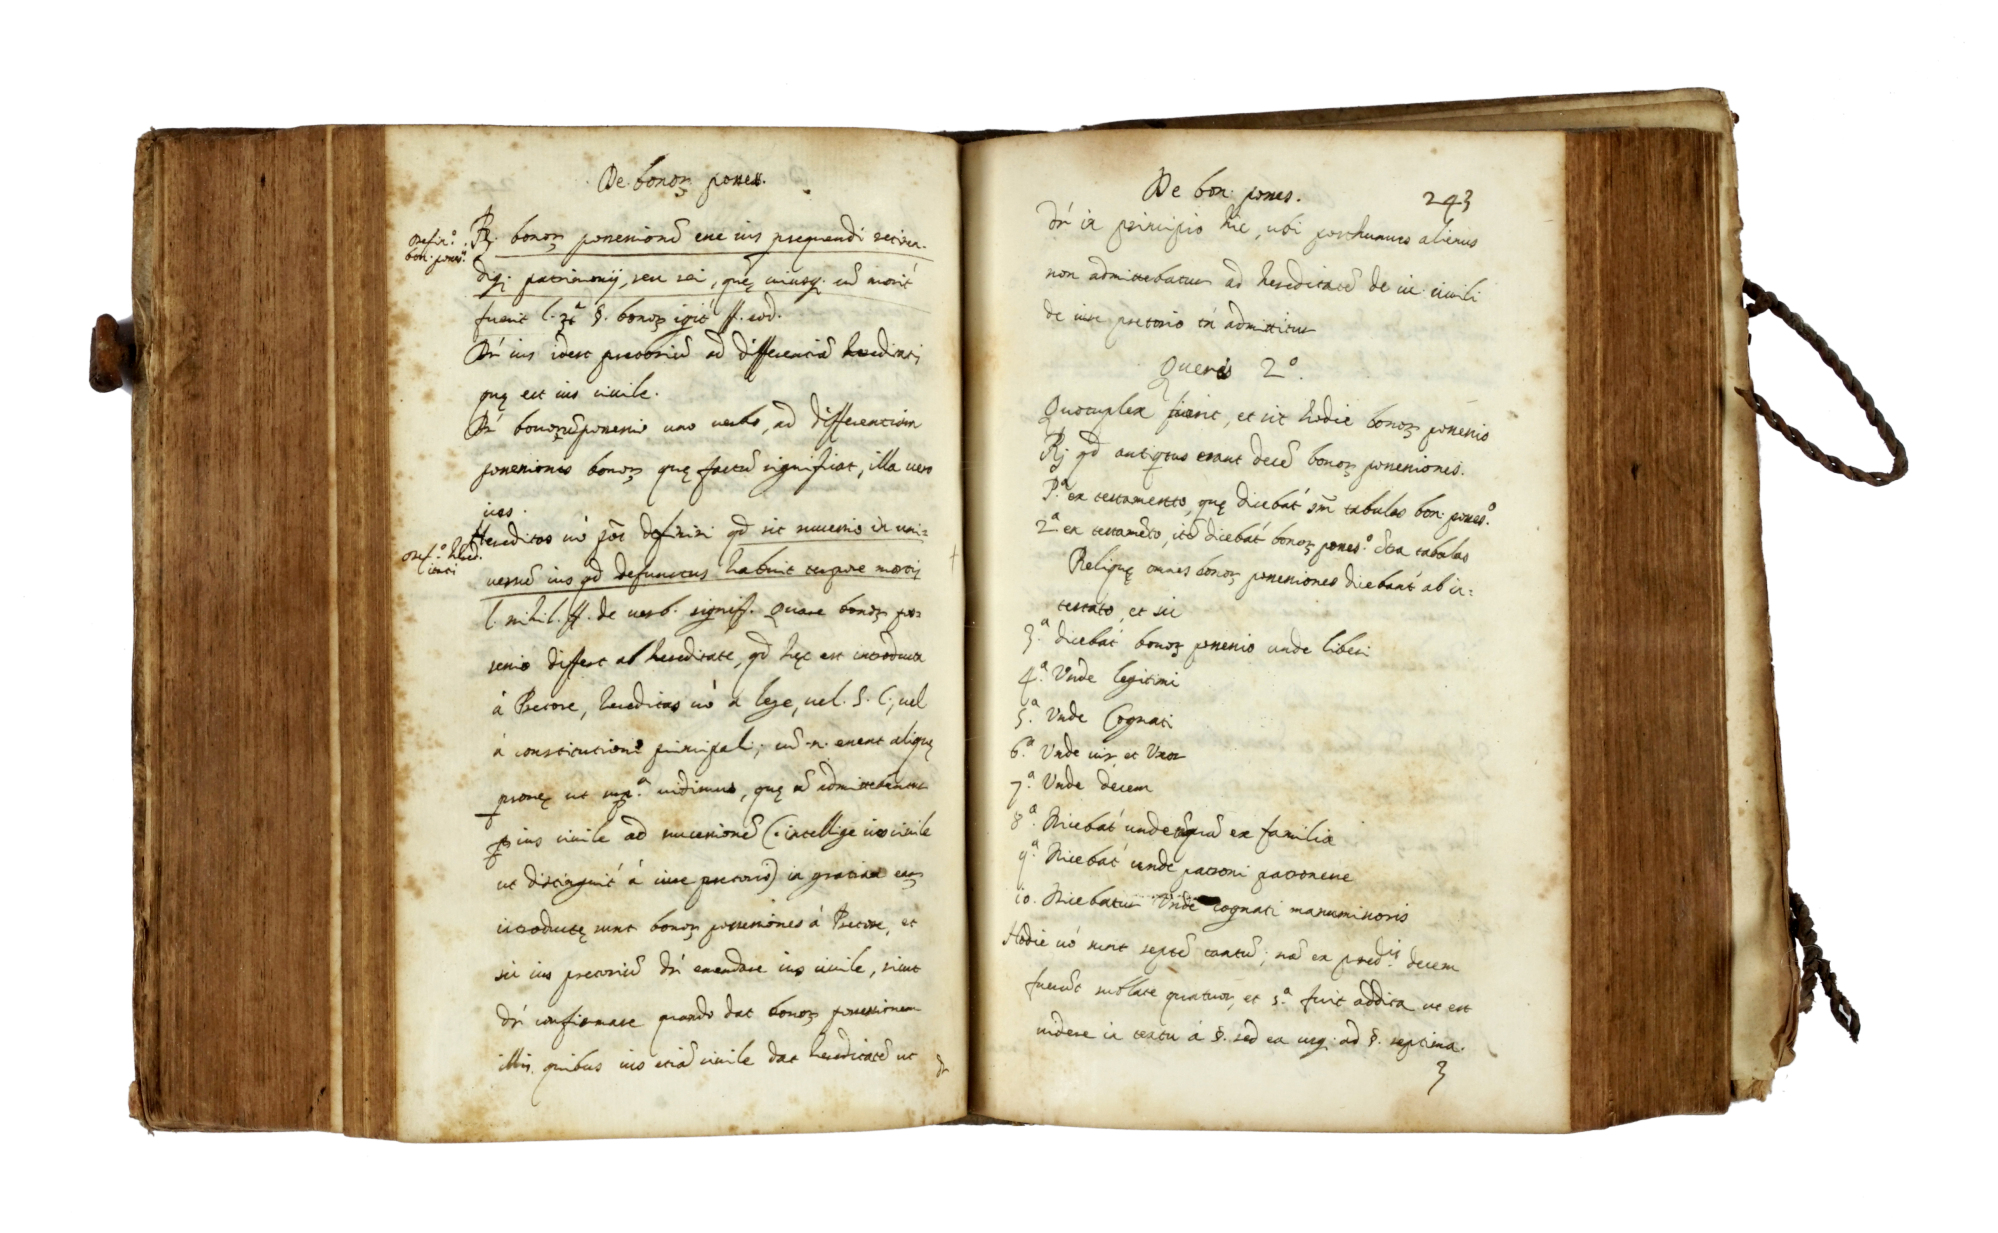 De bonoꝝ posses.
Defin.º
bon. poss.ⁿ
R. bonoꝝ possessionẽ esse ius persequendi retinen-
diq; patrimonij, seu rei, quę cuiusq; cũ morit́
fuerit l. 3.ª §. bonoꝝ igit́ ff. eod.
Dŕ ius idest pretoriũ ad differentiã hereditatis
quę est ius civile.
Dŕ bonoꝝ possessio uno verbo, ad differentiam
possessionis bonoꝝ quę factũ significat, illa vero
ius.
Def.º hered-
itati
Hereditas uó põt definiri qđ sit successio in uni-
versũ ius qđ defunctus habuit tempore mortis
l. nihil. ff. de verb. signif. Quare bonoꝝ pos-
sessio differt ab hereditate, qđ hęc est introducta
à Pretore, hereditas uó à lege, vel. S. C., vel
à constitutione principali; cũ .n. essent aliquę
personę ut sup.ª vidimus, quę ñ admittebantur
per ius civile ad successionẽ (intellige ius civile
ut distinguit́ à iure pretorio) in gratiam eaꝝ
introductę sunt bonoꝝ possessiones à Pretore, et
sic ius pretoriũ dŕ emendare ius civile, sicut
dŕ confirmare quando dat bonoꝝ possessionem
illis quibus ius etiã civile dat hereditatẽ ut
dŕ
De bon. posses.
243
dŕ in principio hic, ubi posthumus alienus
non admittebatur ad hereditatẽ de iure civili
de iure pretorio tń admittitur
Queris 2.º
Quotuplex fuerit, et sit hodie bonoꝝ possessio
R. qđ antiquitus erant decẽ bonoꝝ possessiones.
P.ª ex testamento, quę dicebat́ sm̃ tabulas bon. posses.º
2.ª ex testamẽto, itẽ dicebat́ bonoꝝ posses.º cõtra tabulas
Reliquę omnes bonoꝝ possessiones dicebant́ ab in-
testato, et sic
3.ª dicebat́ bonoꝝ possessio unde liberi
4.ª Vnde legitimi
5.ª Vnde Cognati
6.ª Vnde vir, et Vxor
7.ª Vnde decem
8.ª Dicebat́ unde tãquã ex familia
9.ª Dicebat́ unde patroni patroneue
10. Dicebatur Vnde cognati manumissoris
Hodie uó sunt septẽ tantũ; nã ex pred.is decem
fuerũt sublate quatuor, et 1.ª fuit addita ut est
videre in textu à §. sed ea usq; ad §. septima.
3